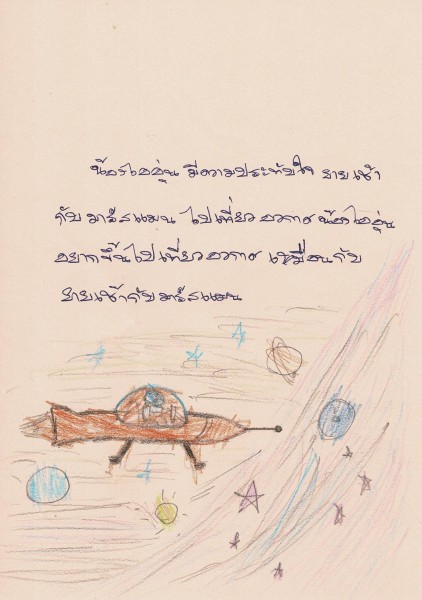 น้องไออุ่น มีความประทับใจ ยายเช้า
กับมาร์ธแมน ไปเที่ยวอวกาศ น้องไออุ่น
อยากขึ้นไปเที่ยวอวกาศ เหมือนกับ
ยายเช้ากับมาร์ธแมน